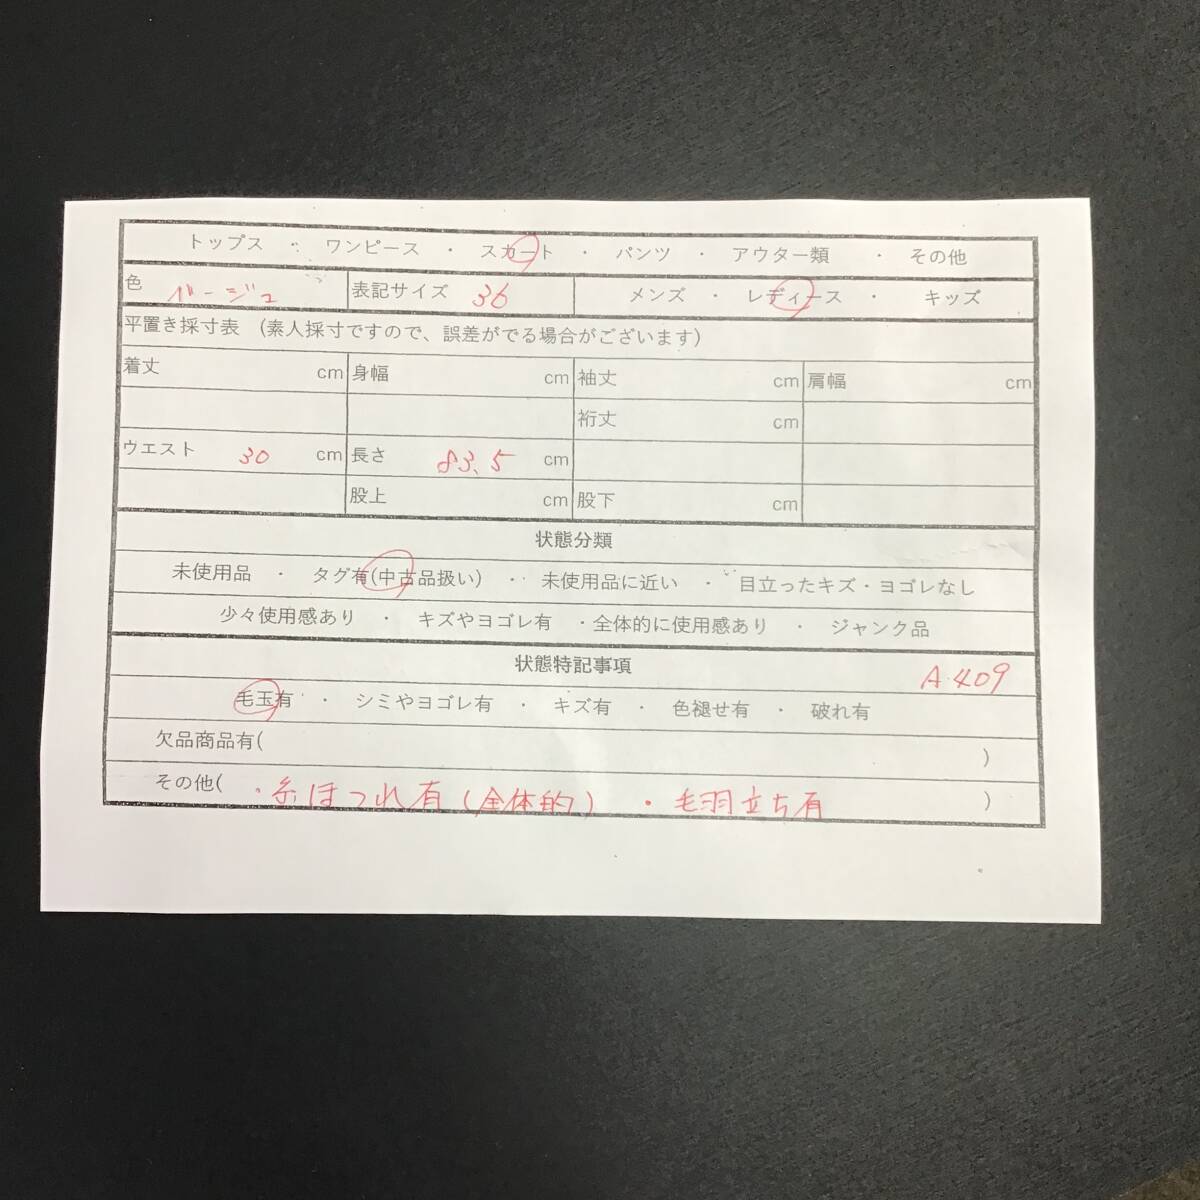 トップス ・ ワンピース ・ スカート ・ パンツ ・ アウター類 ・ その他
色 ベージュ 表記サイズ 36 メンズ ・ レディース ・ キッズ
平置き採寸表 (素人採寸ですので、誤差がでる場合がございます)
着丈 cm 身幅 cm 袖丈 cm 肩幅 cm
裄丈 cm
ウエスト 30 cm 長さ 83.5 cm
股上 cm 股下 cm
状態分類
未使用品 ・ タグ有(中古品扱い) ・ 未使用品に近い ・ 目立ったキズ・ヨゴレなし
少々使用感あり ・ キズやヨゴレ有 ・全体的に使用感あり ・ ジャンク品
状態特記事項 A.409
毛玉有 ・ シミやヨゴレ有 ・ キズ有 ・ 色褪せ有 ・ 破れ有
欠品商品有( )
その他( ・糸ほつれ有(全体的) ・毛羽立ち有 )